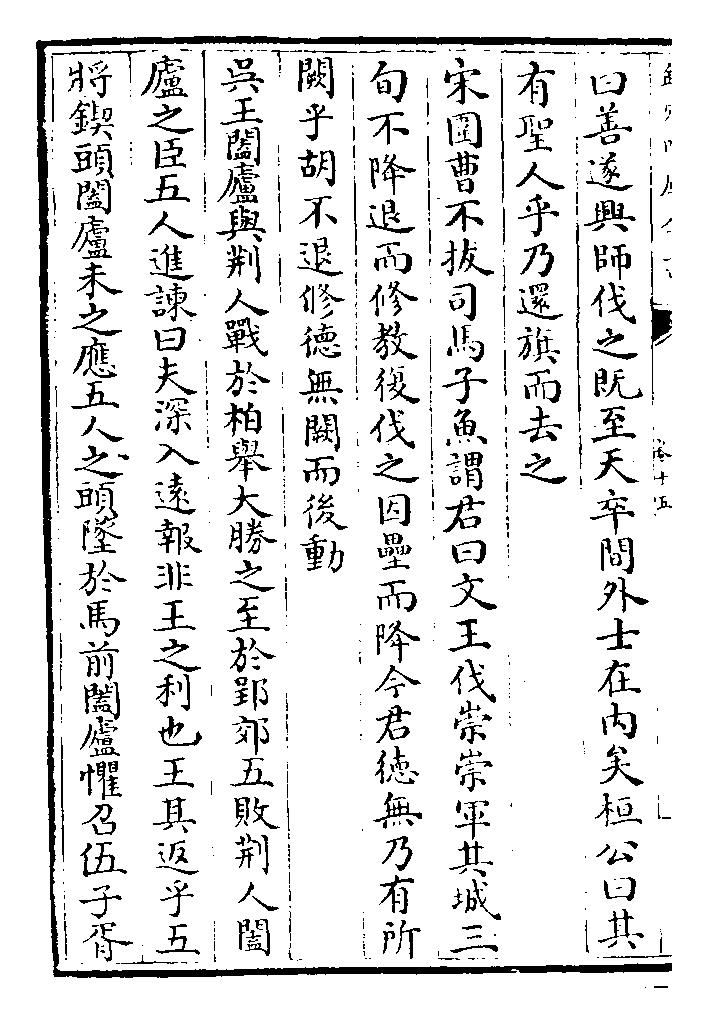 卷十五
曰善遂興師伐之既至天卒間外士在内矣桓公曰其
有聖人乎乃還旗而去之
宋圍曹不拔司馬子魚謂君曰文王伐崇崇軍其城三
旬不降退而修教復伐之因壘而降今君徳無乃有所
闕乎胡不退修徳無闕而後動
吳王闔廬與荆人戰於柏舉大勝之至於郢郊五敗荆人闔
廬之臣五人進諫曰夫深入遠報非王之利也王其返乎五
將鍥頭闔廬未之應五人之頭墜於馬前闔廬懼召伍子胥